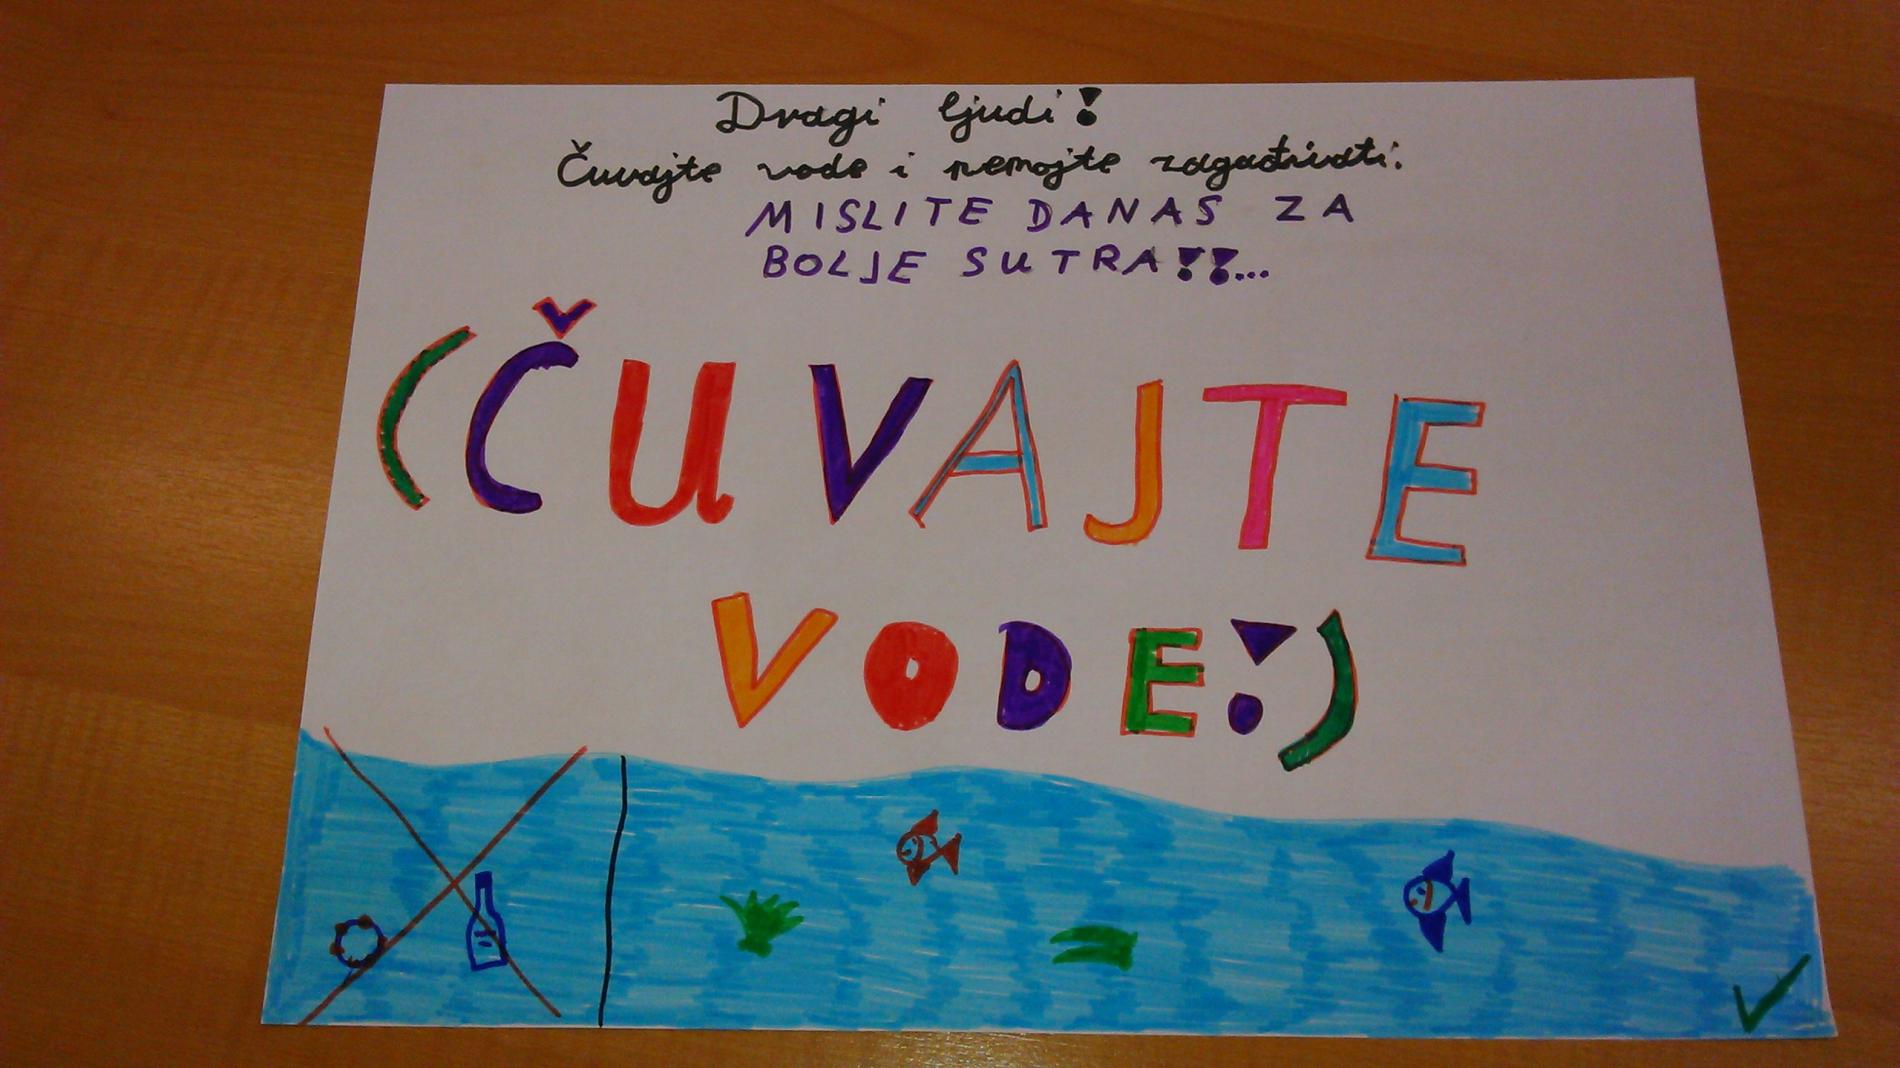 Dragi ljudi!
Čuvajte vode i nemojte zagađivati.
MISLITE DANAS ZA
BOLJE SUTRA!!...
(ČUVAJTE
VODE!)